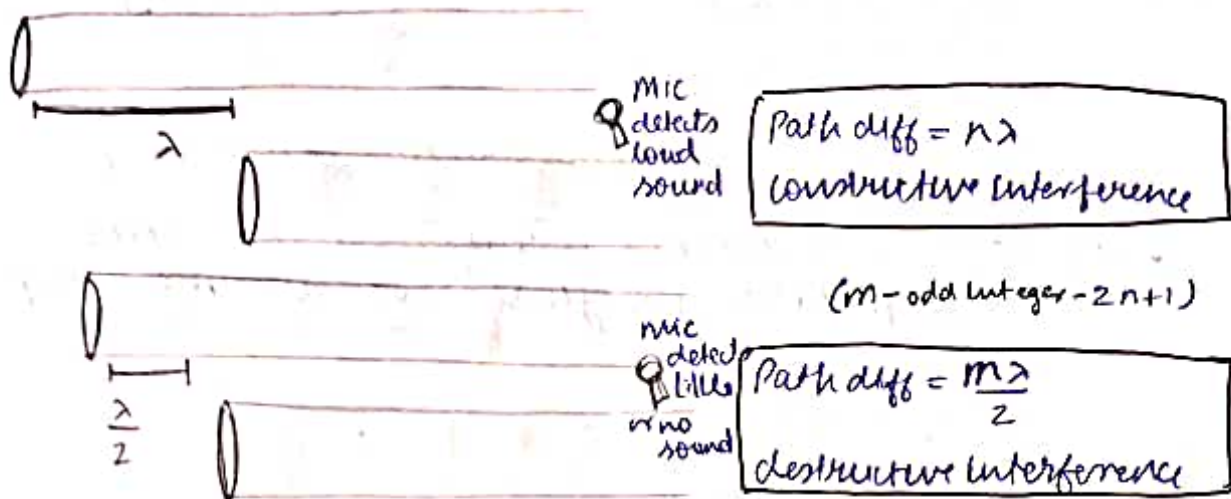 λ
Mic
detects
loud
sound
Path diff = nλ
constructive interference
(m-odd integer-2n+1)
λ/2
mic
detect
little
or no
sound
Path diff = mλ/2
destructive interference